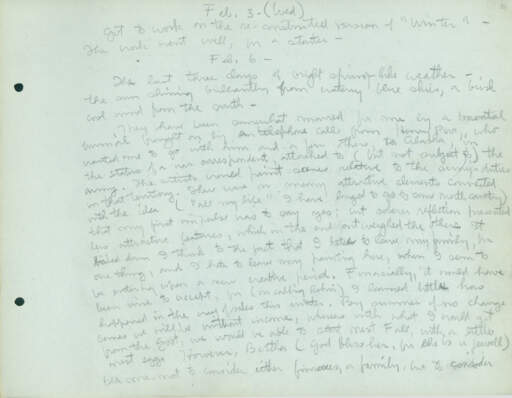 Feb. 3 - (Wed)
Got to work on the re-constructed version of "Winter" -
The work went well, for a starter -
Feb. 6 -
The last three days of bright spring-like weather -
the sun shining brilliantly from watery blue skies, a brisk
cool wind from the south -
They have been somewhat marred for me by a
turmoil brought on by telephone calls from Henry, who
wanted me to go with him and a few others to Alaska in
the status of a war correspondent, attached to (but not subject to) the
army. The artists would paint scenes relative to the army's duties
in that territory. There were so many attractive elements connected
with the idea ("all my life" I have longed to go to some north country)
that my first impulse was to say yes; but sober reflection presented
less attractive features, which in the end out weighed the others. It
boiled down I think to the fact that I hate to leave my family, for
one thing, and I hate to leave my painting here, when I seem to
be entering upon a new creative period. Financially, it would have
been wise to accept, for (in calling Rehn) I learned little has
happened in the way of sales this winter. By summer if no change
comes we will be without income, whereas with what I would get
from the govt, we would be able to start next Fall, with a little
nest egg. However, Bertha (God bless her, for she is a jewel)
has come not to consider either finances, or family, but to consider